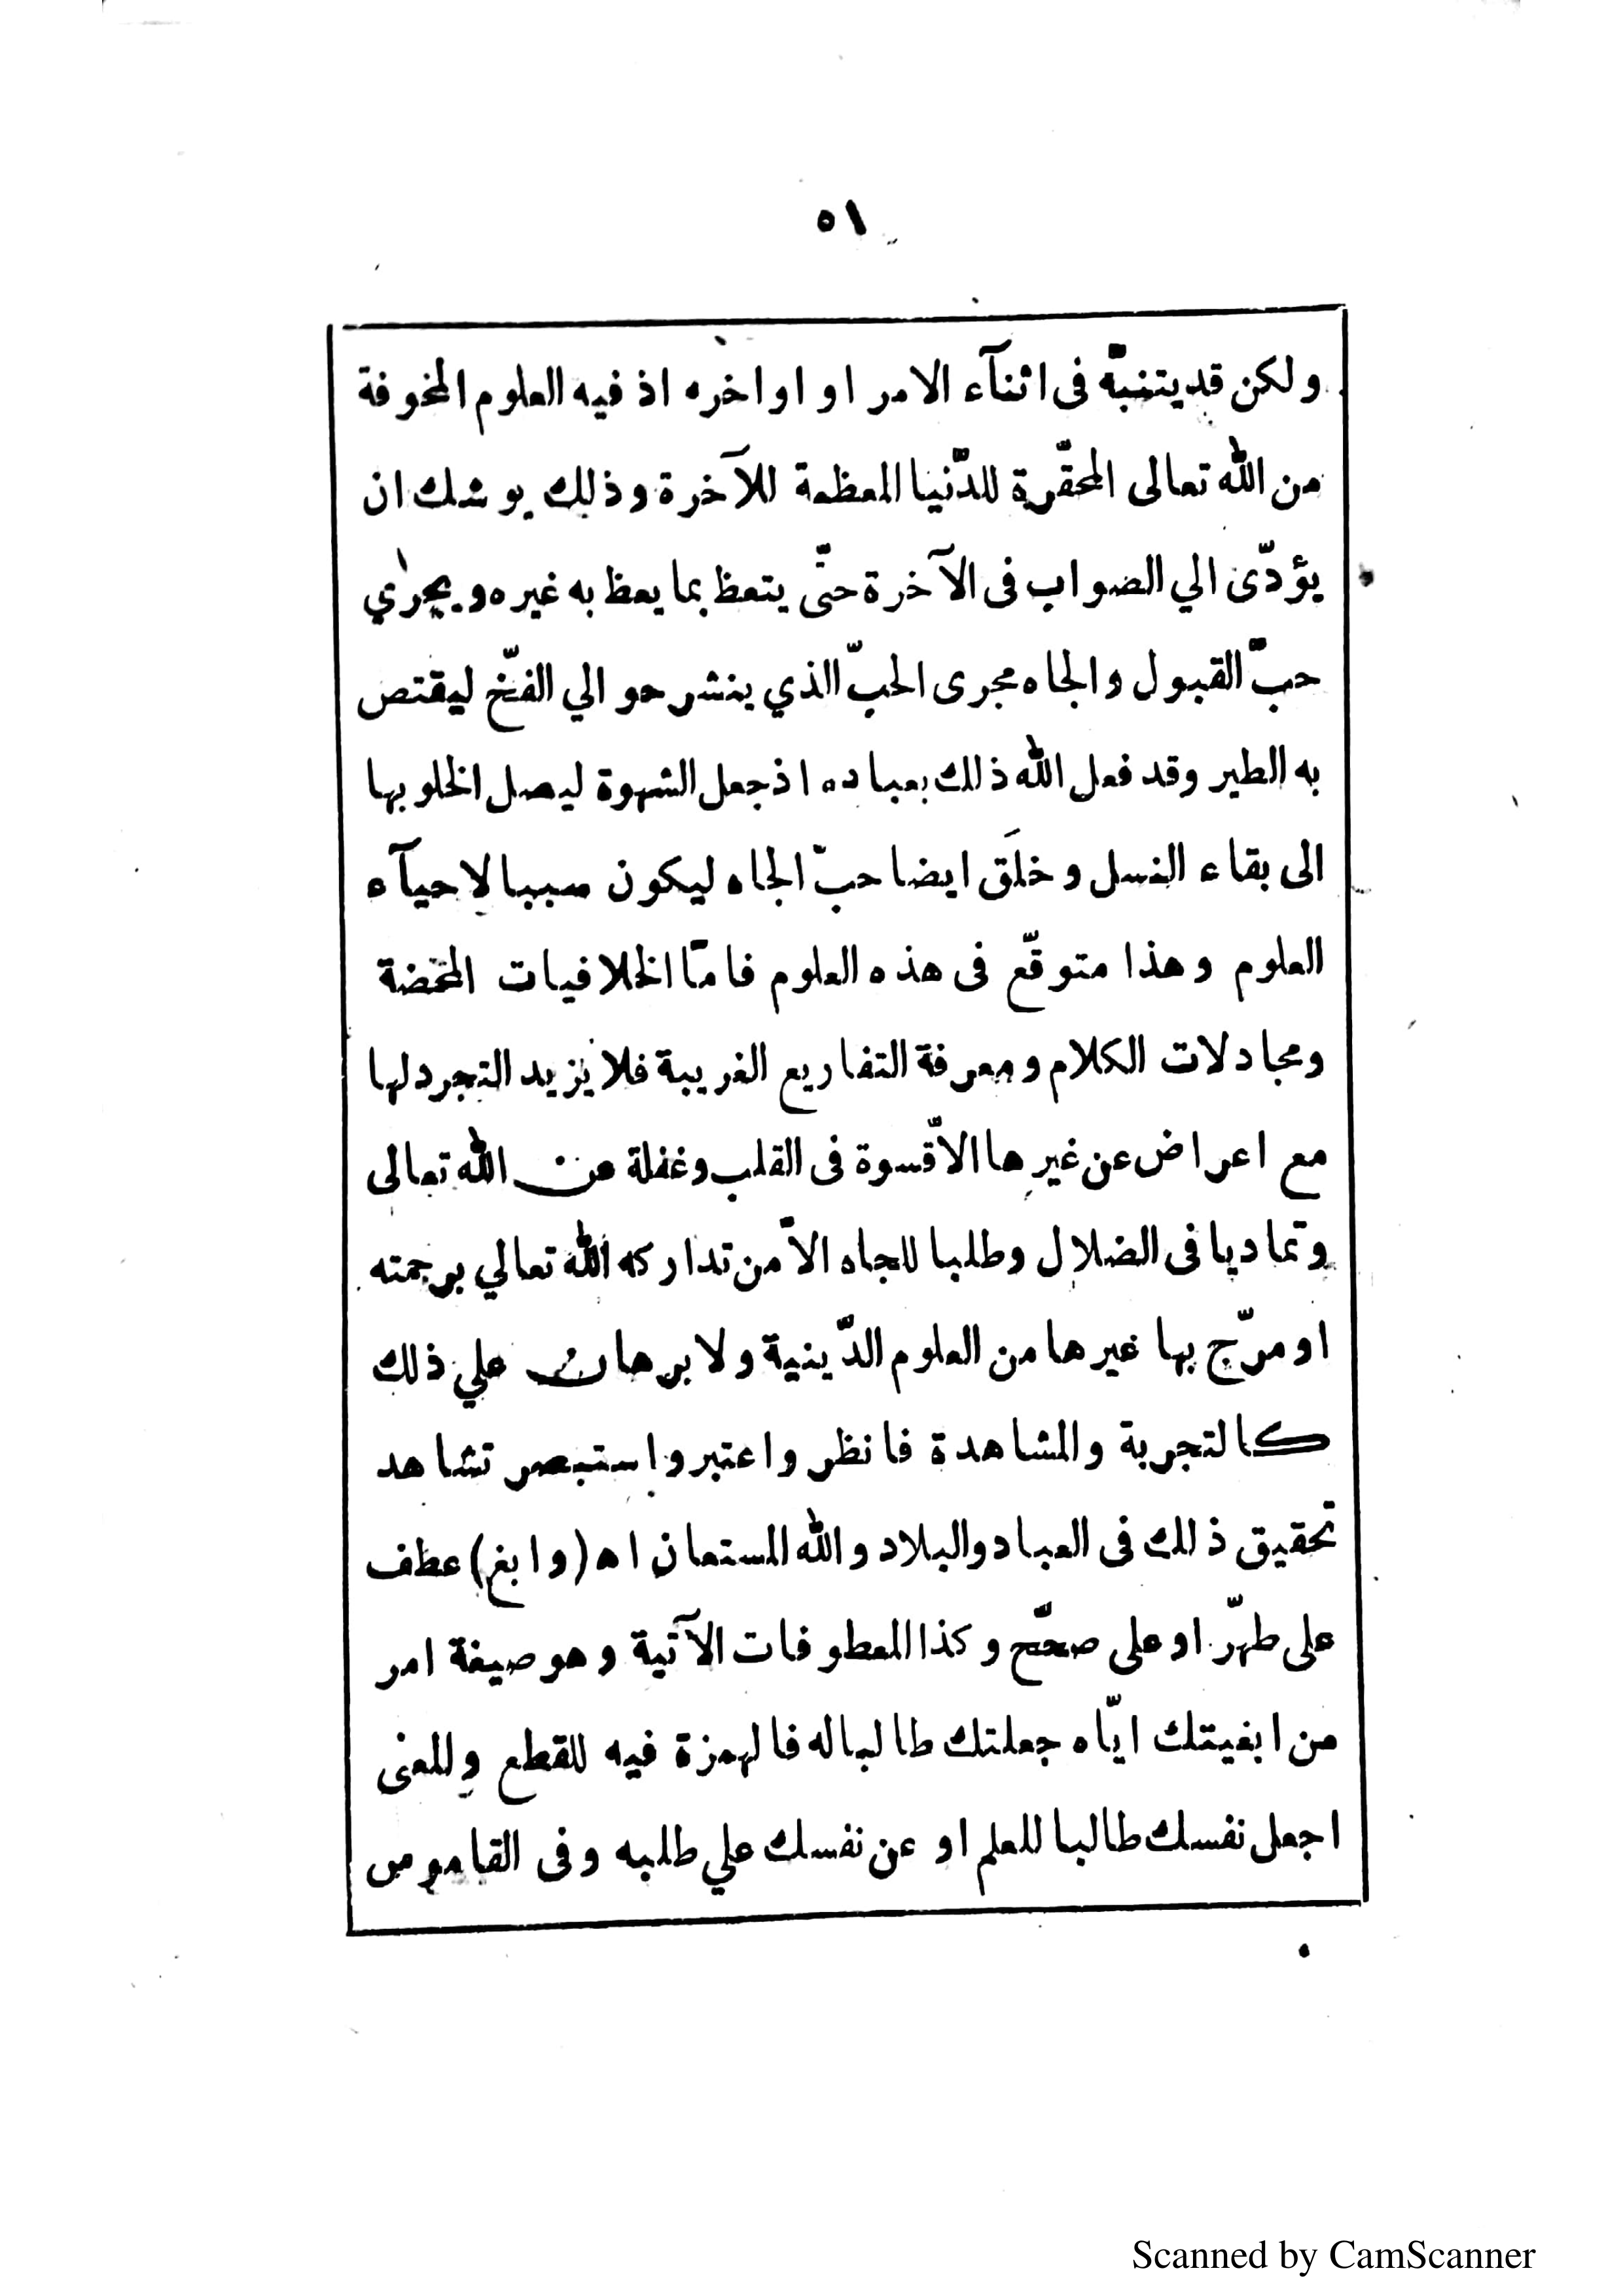 ٥١
ولكن قد يتنبّه فى اثنآء الامر او اواخره اذ فيه العلوم المخوفة
من الله تعالى المحقّرة للدّنيا المعظمة للآخرة وذلك يوشك ان
يؤدّى الي الصواب فى الآخرة حتّى يتعظ بما يعظ به غيره ويجري
حبّ القبول والجاه مجرى الحبّ الذي ينشر حوالي الفخّ ليقتص
به الطير وقد فعل الله ذلك بعباده اذ جعل الشهوة ليصل الخلو بها
الى بقاء النسل وخلَق ايضا حبّ الجاه ليكون سببا لاحيآه
العلوم وهذا متوقّع فى هذه العلوم فامّا الخلافيات المخضة
ومجادلات الكلام ومعرفة التفاريع الغريبة فلا يزيد التجرد لها
مع اعراض عن غيرها الاّ قسوة فى القلب وغفلة عن الله تعالى
وتماديا فى الضلال وطلبا للجاه الاّ من تداركه الله تعالي برحمته
او مزّج بها غيرها من العلوم الدّينية ولا برهان علي ذلك
كالتجربة والمشاهدة فانظر واعتبر واستبصر تشاهد
تحقيق ذلك فى العباد والبلاد والله المستعان اه (وابغ) عطف
على طهّر او على صحّح وكذا المعطوفات الآتية وهو صيغة امر
من ابغيتك ايّاه جعلتك طالبا له فالهمزة فيه للقطع وللعنى
اجعل نفسك طالبا للعلم او عن نفسك علي طلبه وفى القاموس
Scanned by CamScanner